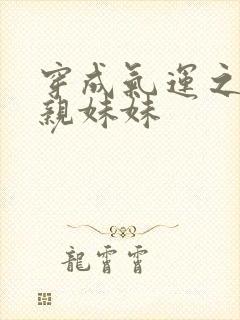 穿成氣運之
親妹妹
龍霄霄